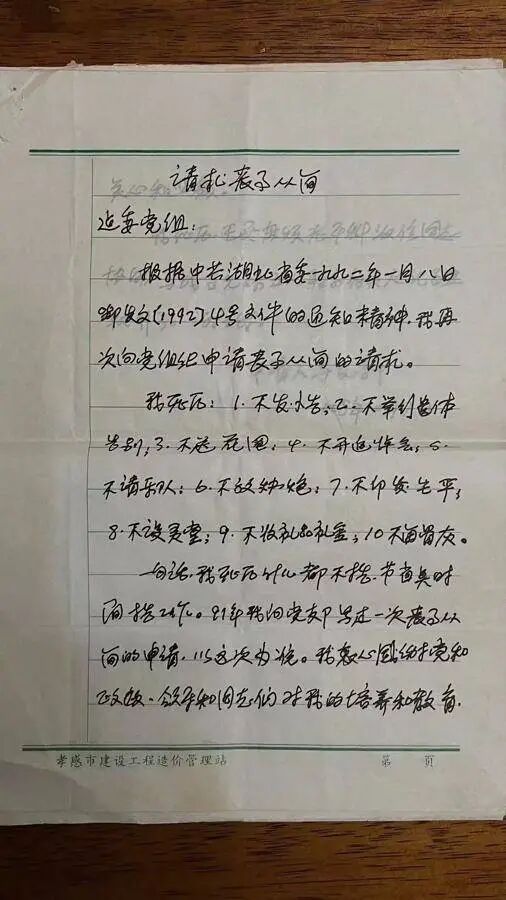 请求丧事从简
建委党组：
根据中共湖北省委一九九二年一月八日
鄂发文(1992)4号文件的通知精神，我再
次向党组织申请丧事从简的请求。
我死后：1.不发讣告；2.不举行遗体
告别；3.不送花圈；4.不开追悼会；5.
不请乐队；6.不放鞭炮；7.不印发生平；
8.不设灵堂；9.不收礼品礼金；10不留骨灰。
一句话，我死后什么都不搞，节省
间搞。91年我向党支部写过一次丧事从
简的申请，以这次为准。我衷心感谢党和
政府、领导和同志们对我的培养和教育，
孝感市建设工程造价管理站
第 页